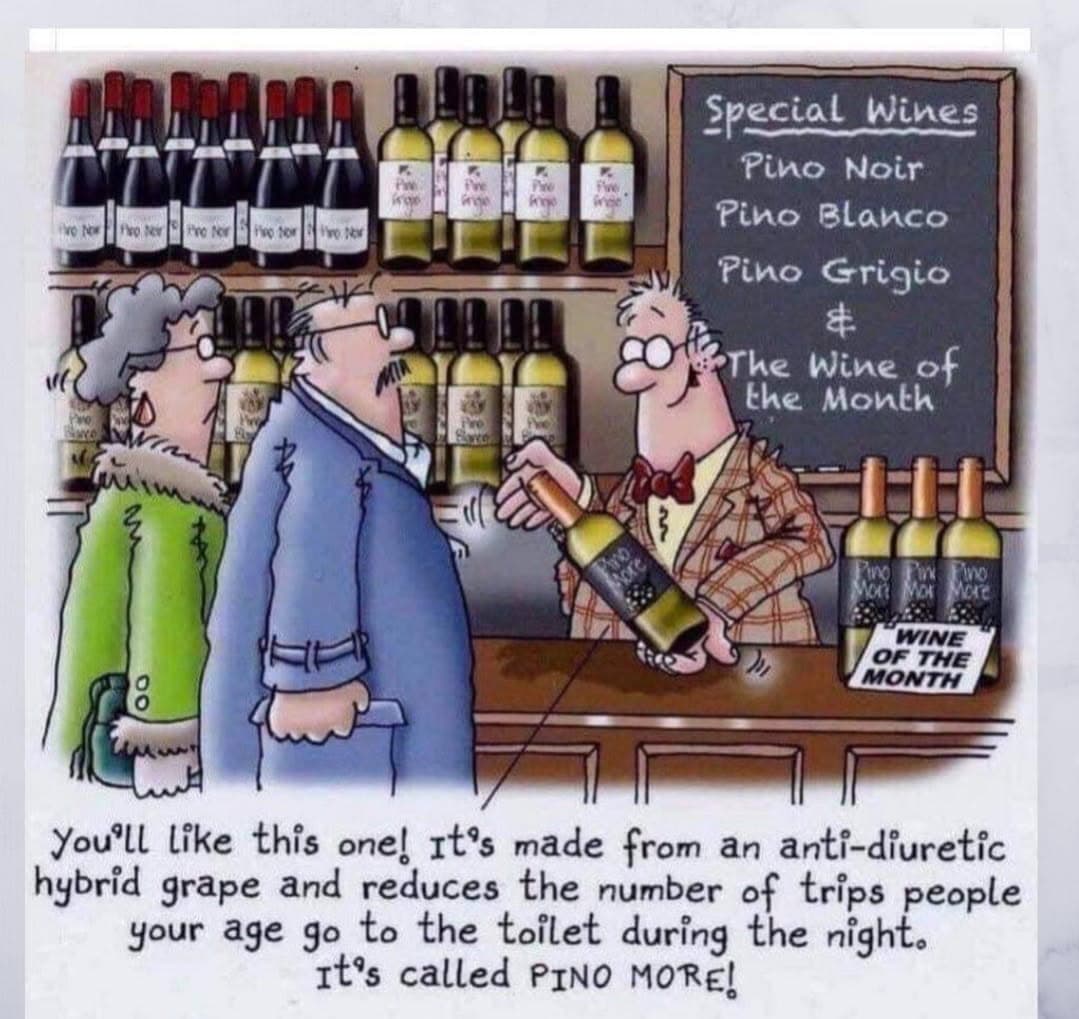 Special Wines
Pino Noir
Pino Blanco
Pino Grigio
&
The Wine of
the Month
Pino Noir
Pino Noir
Pino Noir
Pino Noir
Pino Noir
Pino
Grigio
Pino
Grigio
Pino
Grigio
Pino
Grigio
Pino
Blanco
Pino
Blanco
Pino
Pino
More
Pino
More
Pino
More
Pino
More
WINE
OF THE
MONTH
You'll like this one! It's made from an anti-diuretic
hybrid grape and reduces the number of trips people
your age go to the toilet during the night.
It's called PINO MORE!